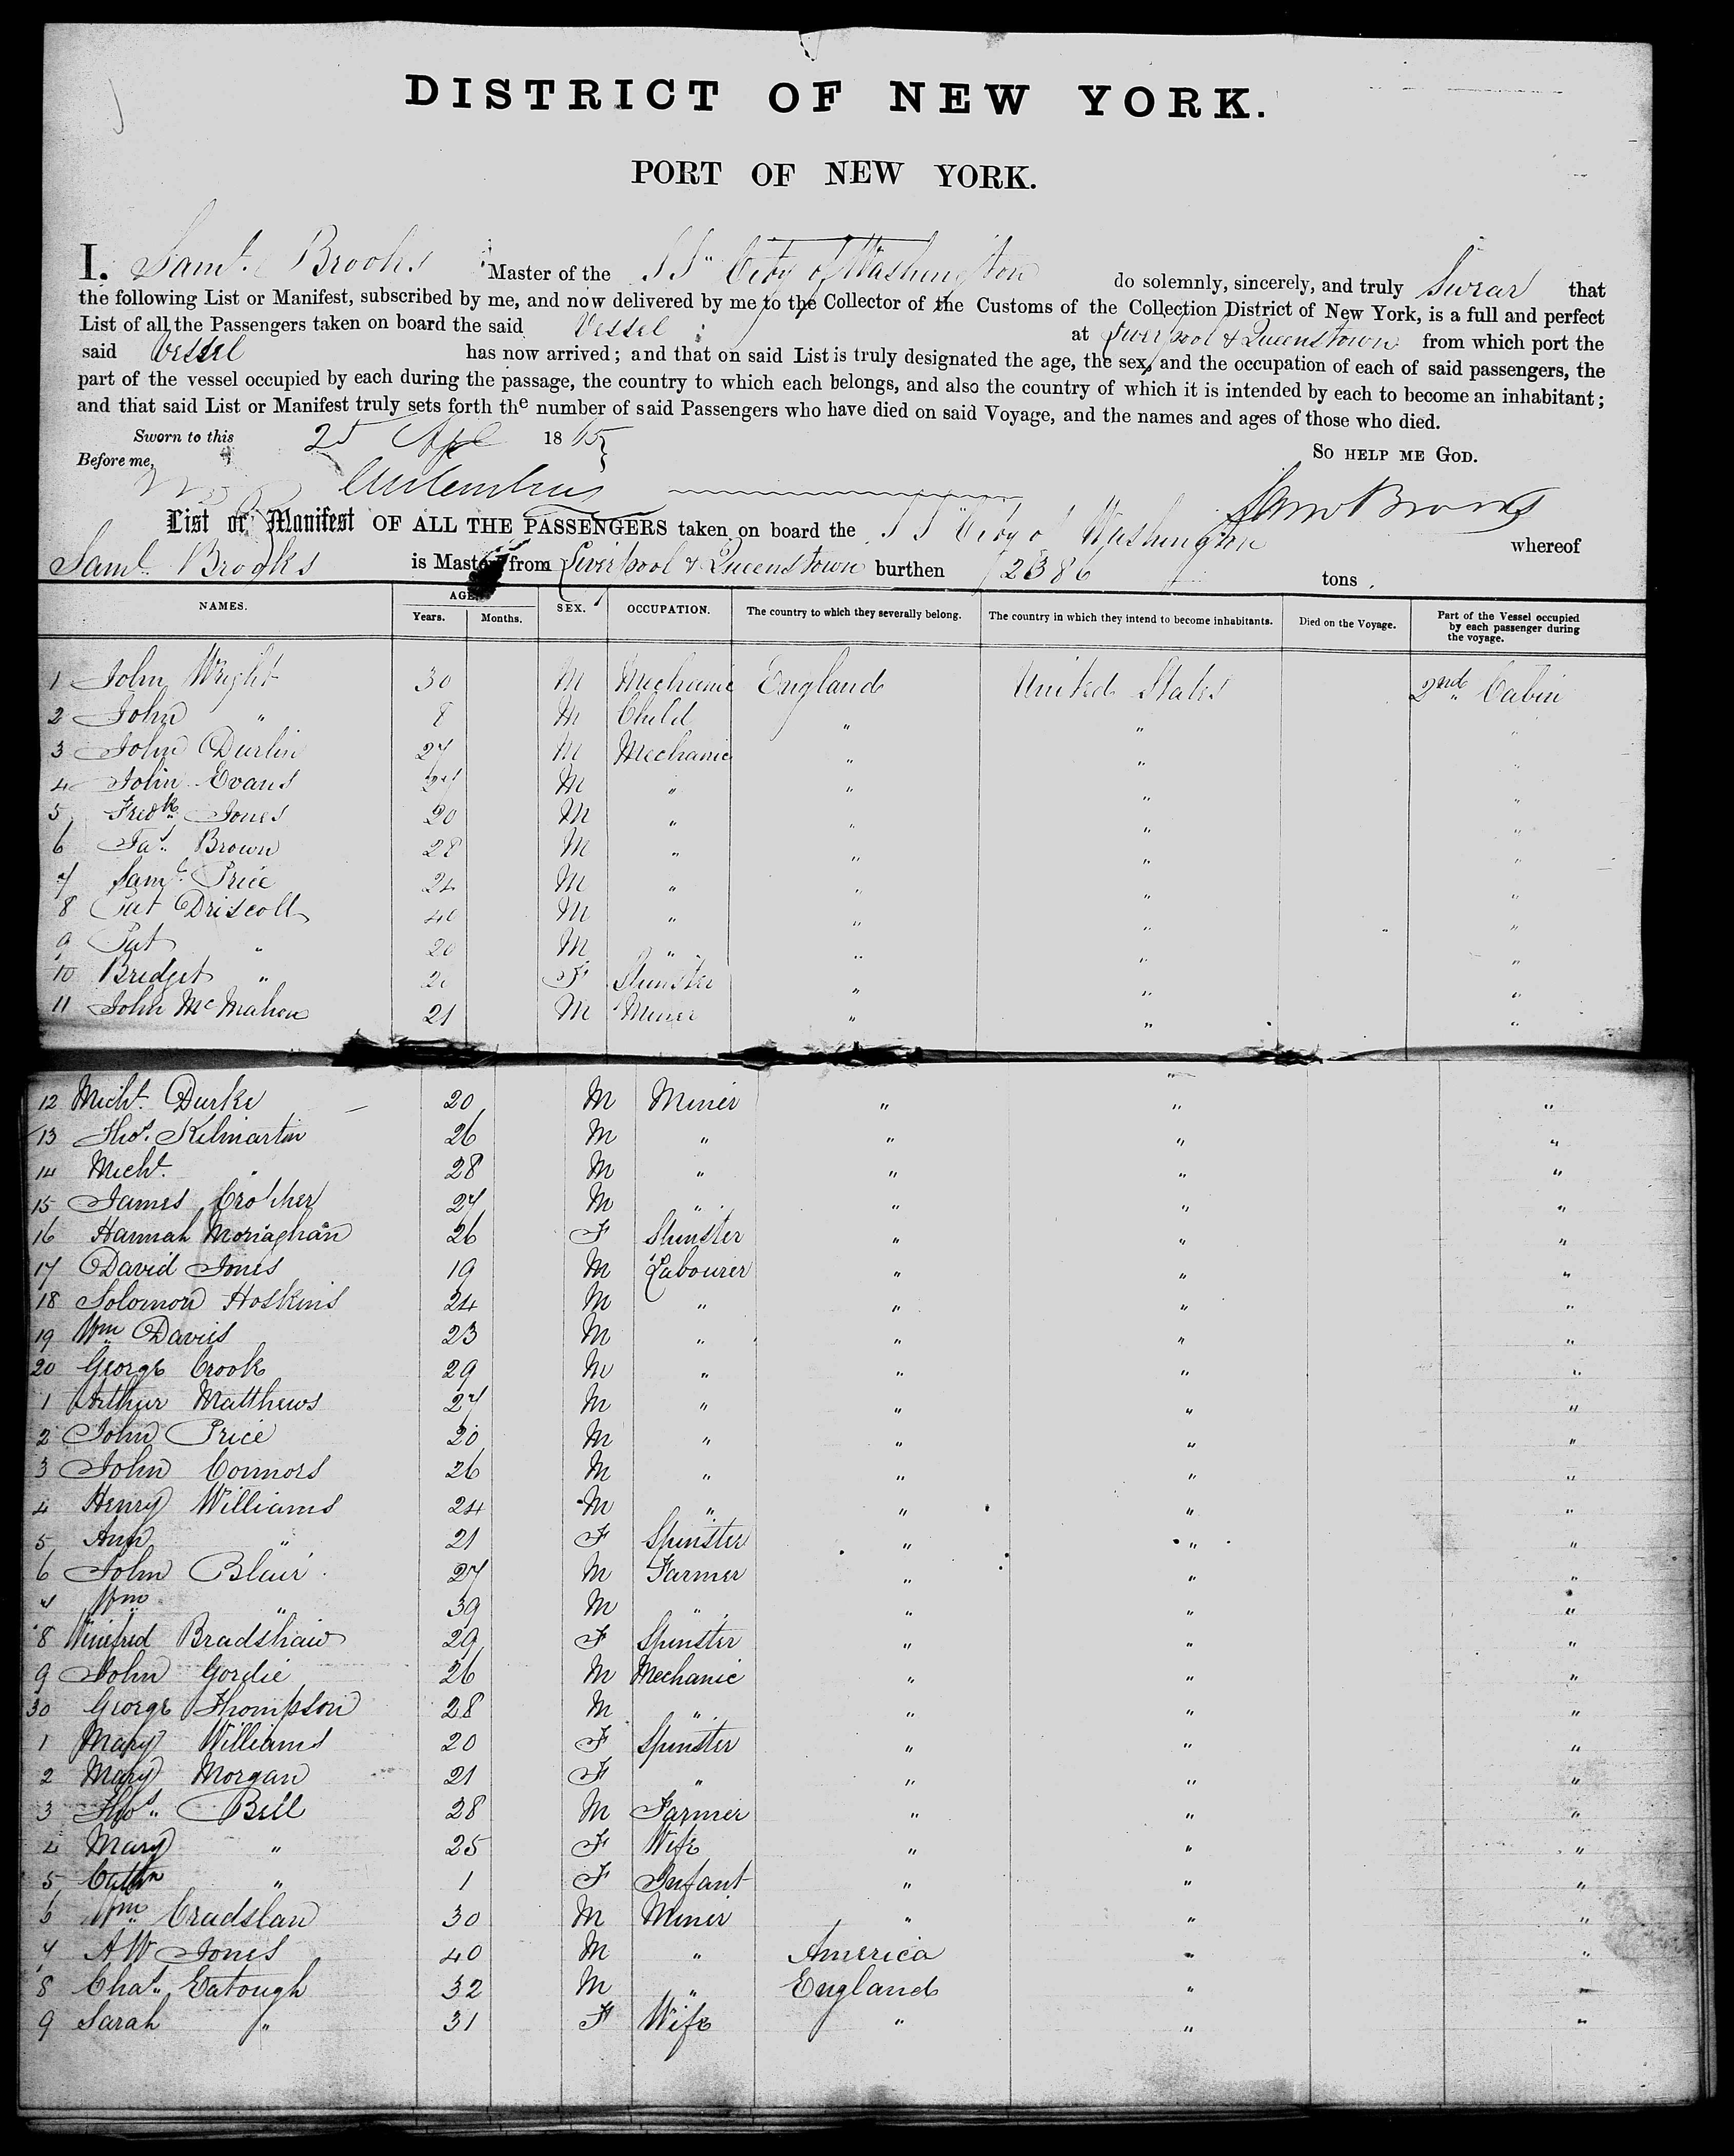 DISTRICT OF NEW YORK.
PORT OF NEW YORK.
I, Saml. Brooks Master of the SS "City of Washington do solemnly, sincerely, and truly Swear that
the following List or Manifest, subscribed by me, and now delivered by me to the Collector of the Customs of the Collection District of New York, is a full and perfect
List of all the Passengers taken on board the said Vessel at Liverpool & Queenstown from which port the
said Vessel has now arrived; and that on said List is truly designated the age, the sex, and the occupation of each of said passengers, the
part of the vessel occupied by each during the passage, the country to which each belongs, and also the country of which it is intended by each to become an inhabitant;
and that said List or Manifest truly sets forth the number of said Passengers who have died on said Voyage, and the names and ages of those who died.
Sworn to this 25 Apl 1865 So HELP ME GOD.
Before me,
Saml Brooks
List or Manifest OF ALL THE PASSENGERS taken on board the SS "City of Washington whereof
Saml. Brooks is Master, from Liverpool & Queenstown burthen 2386 tons.
NAMES. AGE. Years. Months. SEX. OCCUPATION. The country to which they severally belong. The country in which they intend to become inhabitants. Died on the Voyage. Part of the Vessel occupied by each passenger during the voyage.
1 John Wright 30 M Mechanic England United States 2nd Cabin
2 John " 8 M Child " " "
3 John Durlin 27 M Mechanic " " "
4 John Evans 27 M " " " "
5 Fredk. Jones 20 M " " " "
6 Jas. Brown 28 M " " " "
7 Saml. Price 24 M " " " "
8 Pat Driscoll 40 M " " " "
9 Pat " 20 M " " " "
10 Bridget " 20 F Spinster " " "
11 John McMahon 21 M Miner " " "
12 Michl. Durke 20 M Miner " " "
13 Thos. Kilmartin 26 M " " " "
14 Michl. " 28 M " " " "
15 James Crother 27 M " " " "
16 Hannah Monaghan 26 F Spinster " " "
17 David Jones 19 M Labourer " " "
18 Solomon Hoskins 24 M " " " "
19 Wm Davies 23 M " " " "
20 George Crook 29 M " " " "
1 Arthur Matthews 27 M " " " "
2 John Price 20 M " " " "
3 John Connors 26 M " " " "
4 Henry Williams 24 M " " " "
5 Ann " 21 F Spinster " " "
6 John Blair 27 M Farmer " " "
7 Wm " 39 M " " " "
8 Winifred Bradshaw 29 F Spinster " " "
9 John Gordie 26 M Mechanic " " "
30 George Thompson 28 M " " " "
1 Mary Williams 20 F Spinster " " "
2 Mary Morgan 21 F " " " "
3 Thos. Bell 28 M Farmer " " "
4 Mary " 25 F Wife " " "
5 Cathn " 1 F Infant " " "
6 Wm Cradslan 30 M Miner " " "
7 AW Jones 40 M " America " "
8 Chas. Eatough 32 M " England " "
9 Sarah " 31 F Wife " " "